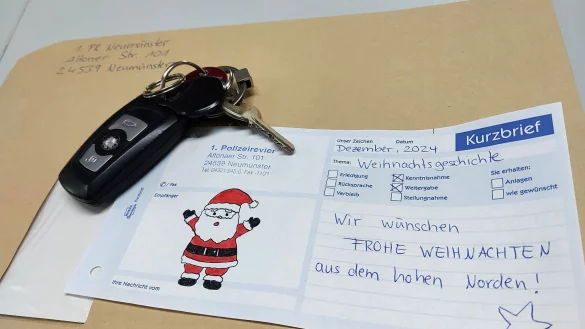 1. PR Neumünster
Altonaer Str. 101
24539 Neumünster
1. Polizeirevier
Altonaer Str. 101
24539 Neumünster
Unser Zeichen Datum
Dezember, 2024
Kurzbrief
Thema: Weihnachtsgeschichte
Erledigung
Rücksprache
Verbleib
Kenntnisnahme
Weitergabe
Stellungnahme
Sie erhalten:
Anlagen
wie gewünscht
Empfänger
Ihre Nachricht vom
Wir wünschen
FROHE WEIHNACHTEN
aus dem hohen Norden!